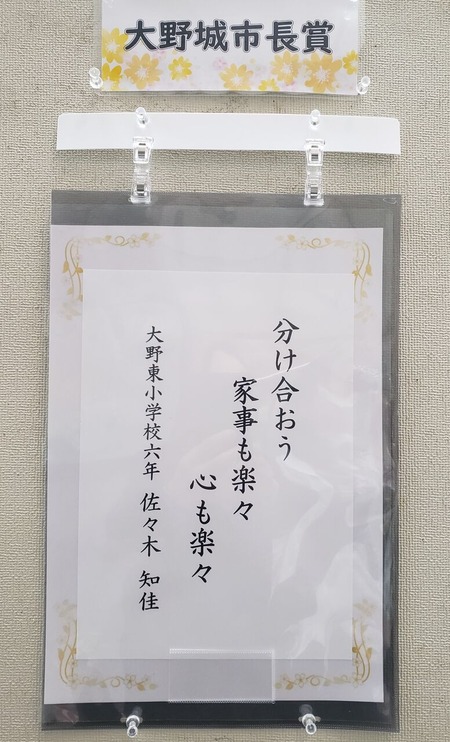 大野城市長賞
分け合おう
家事も楽々
心も楽々
大野東小学校六年 佐々木 知佳